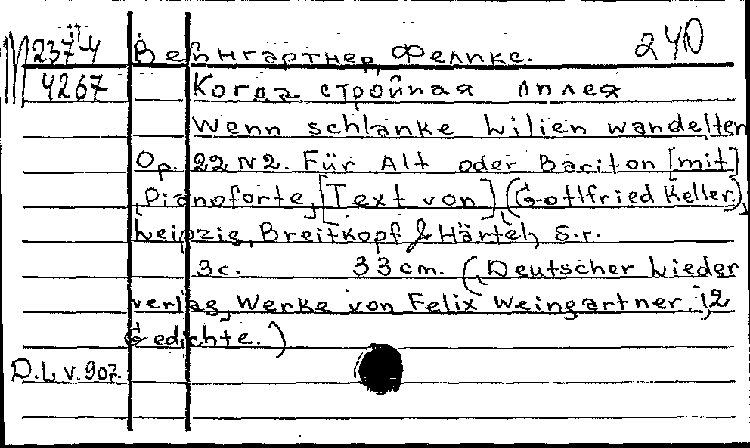 M 237-4 Вейнгартнер, Феликс. 240
4267 Когда стройная лилея
Wenn schlanke Lilien wandelten
Op. 22 N2. Für Alt oder Bariton [mit]
Pianoforte, [Text von] (Gottfried Keller),
Leipzig, Breitkopf & Härtel, s.r.
3c. 33cm. (Deutscher Lieder
verlag, Werke von Felix Weingartner. 12
Gedichte.)
D.L.v.907.